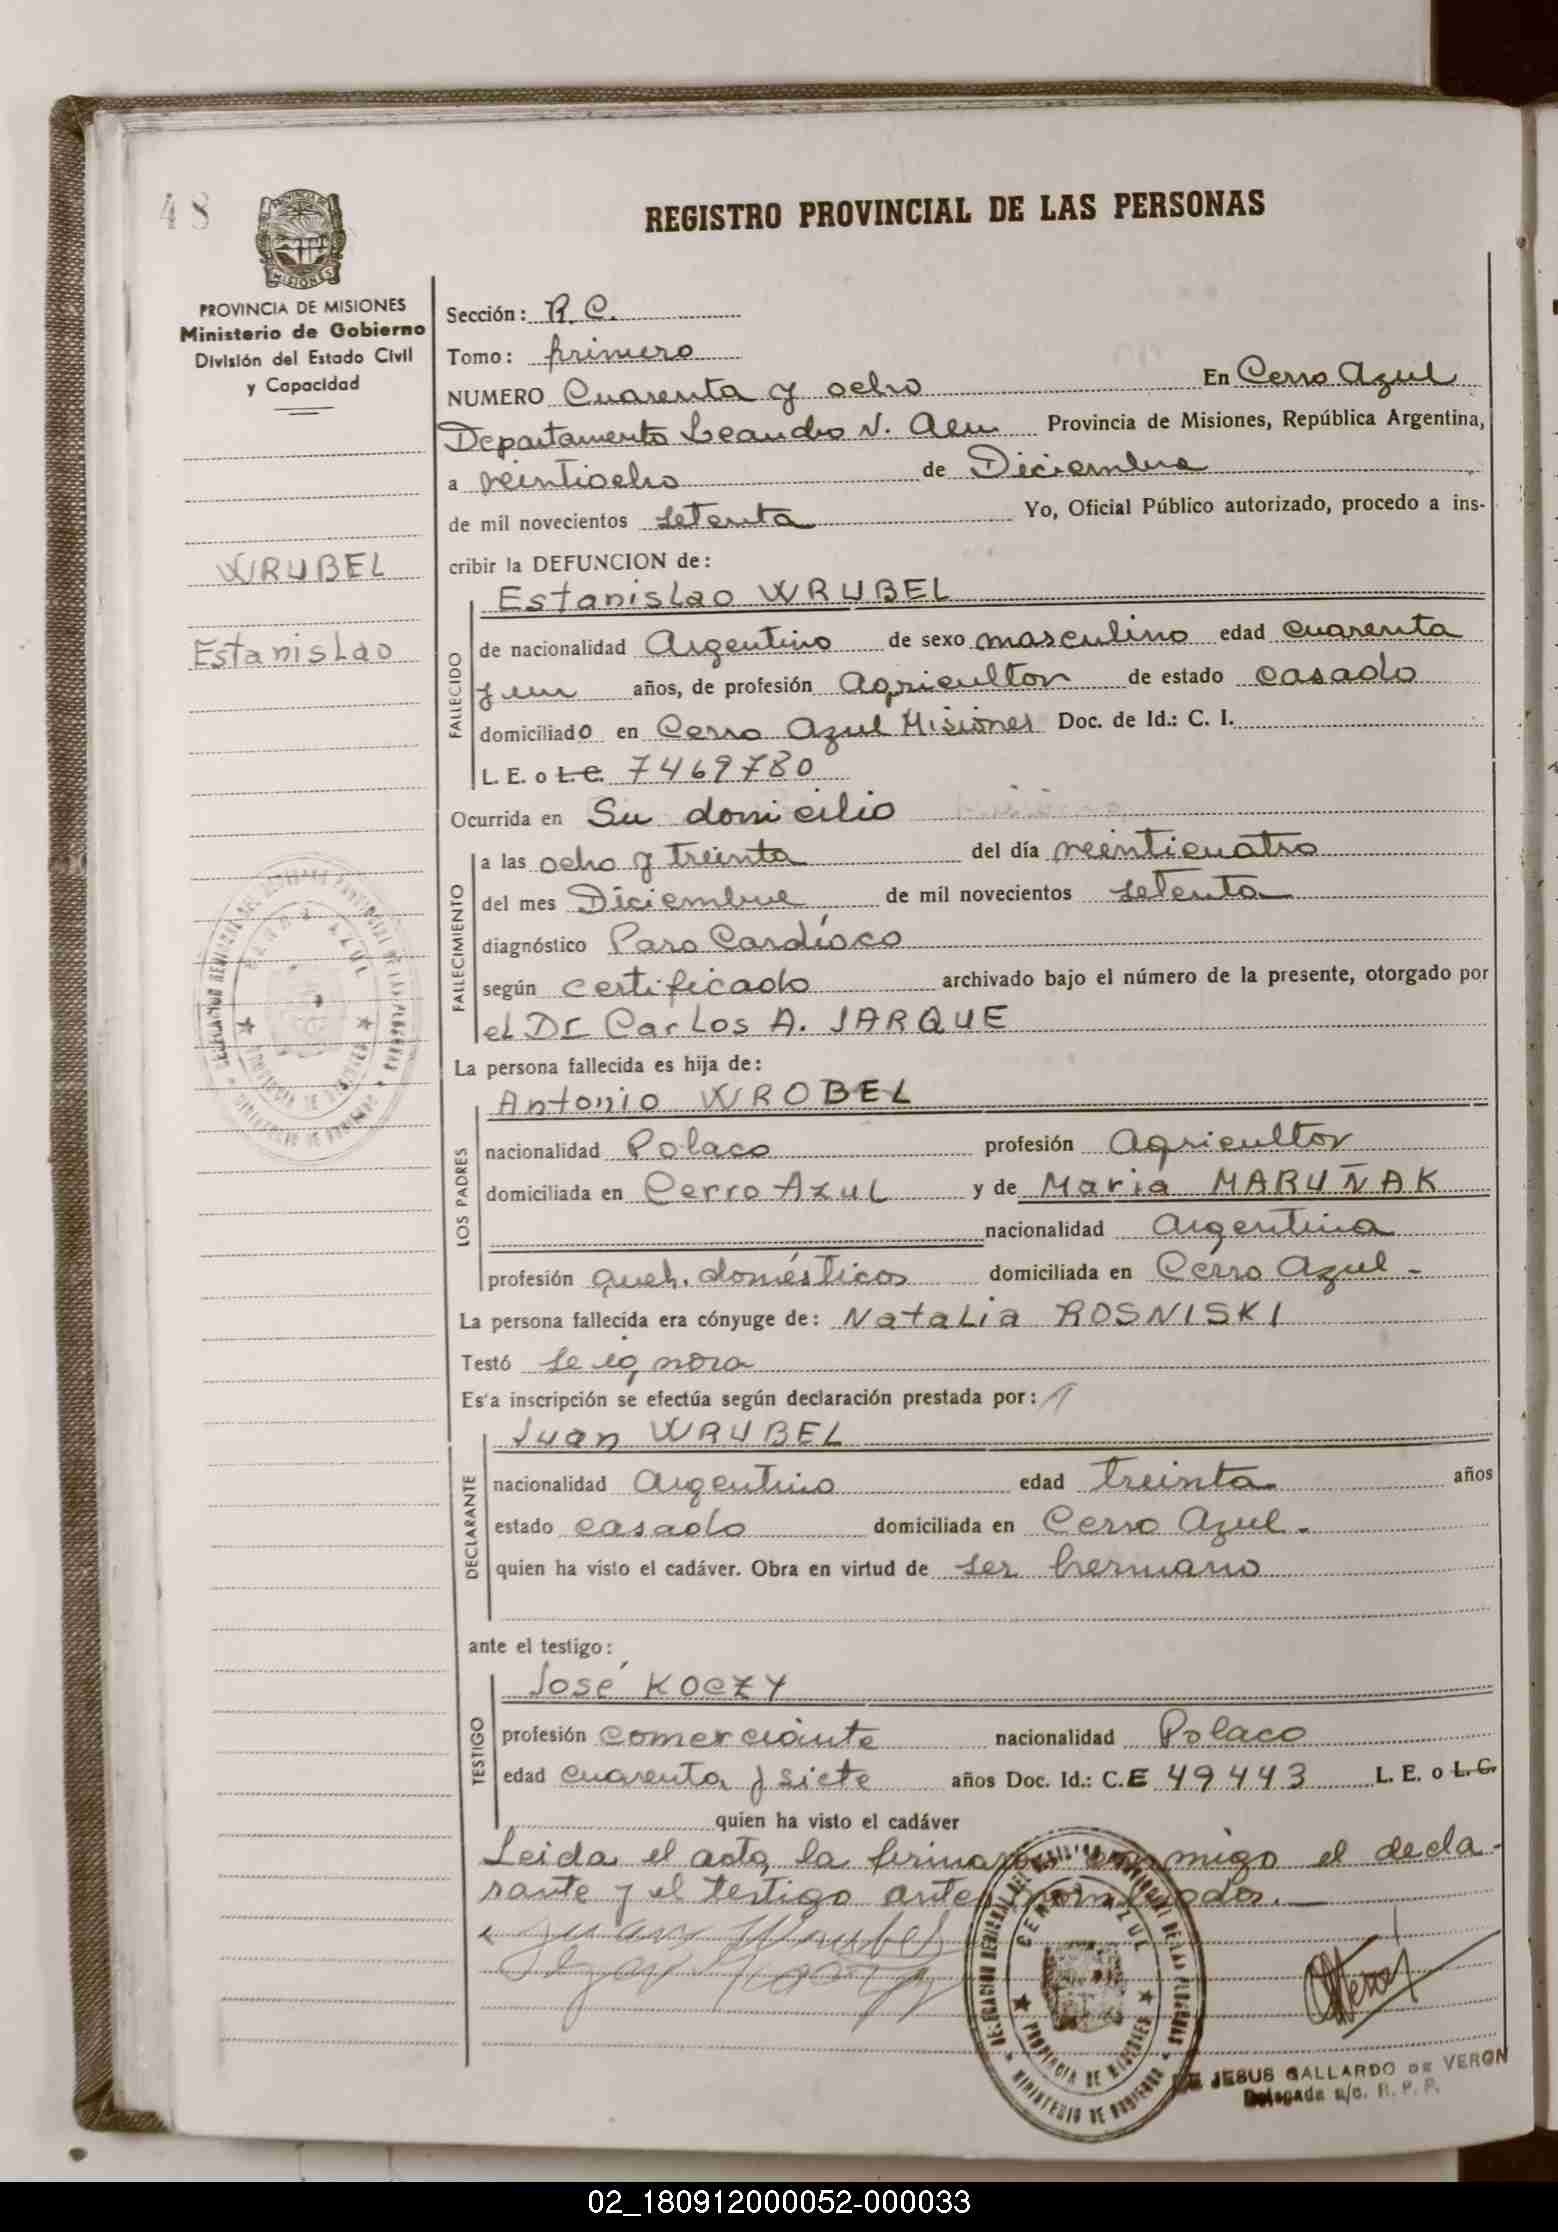 48
REGISTRO PROVINCIAL DE LAS PERSONAS
PROVINCIA DE MISIONES
Ministerio de Gobierno
División del Estado Civil
y Capacidad
WRUBEL
Estanislao
Sección: R. C.
Tomo: primero
NUMERO Cuarenta y ocho En Cerro Azul
Departamento Leandro N. Alem Provincia de Misiones, República Argentina,
a veintiocho de Diciembre
de mil novecientos setenta Yo, Oficial Público autorizado, procedo a ins-
cribir la DEFUNCION de:
Estanislao WRUBEL
FALLECIDO
de nacionalidad Argentino de sexo masculino edad cuarenta
y un años, de profesión Agricultor de estado casado
domiciliado en Cerro Azul Misiones Doc. de Id.: C. I.
L. E. o L.C. 7469780
Ocurrida en Su domicilio
FALLECIMIENTO
a las ocho y treinta del día veinticuatro
del mes Diciembre de mil novecientos setenta
diagnóstico Paro Cardíaco
según certificado archivado bajo el número de la presente, otorgado por
el Dr Carlos A. JARQUE
La persona fallecida es hija de:
Antonio WROBEL
LOS PADRES
nacionalidad Polaco profesión Agricultor
domiciliada en Cerro Azul y de Maria MARUÑAK
nacionalidad Argentina
profesión queh. domésticos domiciliada en Cerro Azul -
La persona fallecida era cónyuge de: Natalia ROSNISKI
Testó se ignora
Es'a inscripción se efectúa según declaración prestada por:
Juan WRUBEL
DECLARANTE
nacionalidad Argentino edad treinta años
estado casado domiciliada en Cerro Azul.
quien ha visto el cadáver. Obra en virtud de ser hermano
ante el testigo:
José KOCZY
TESTIGO
profesión comerciante nacionalidad Polaco
edad cuarenta y siete años Doc. Id.: C.E 49443 L. E. o L. C.
quien ha visto el cadáver
Leida el acta, la firman conmigo el decla-
rante y el testigo antes nombrados.
Juan Wrubel
CERRO AZUL
PROVINCIA DE MISIONES
MINISTERIO DE GOBIERNO
DE JESUS GALLARDO DE VERON
Delegada a/c. R. P. P.
02_180912000052-000033